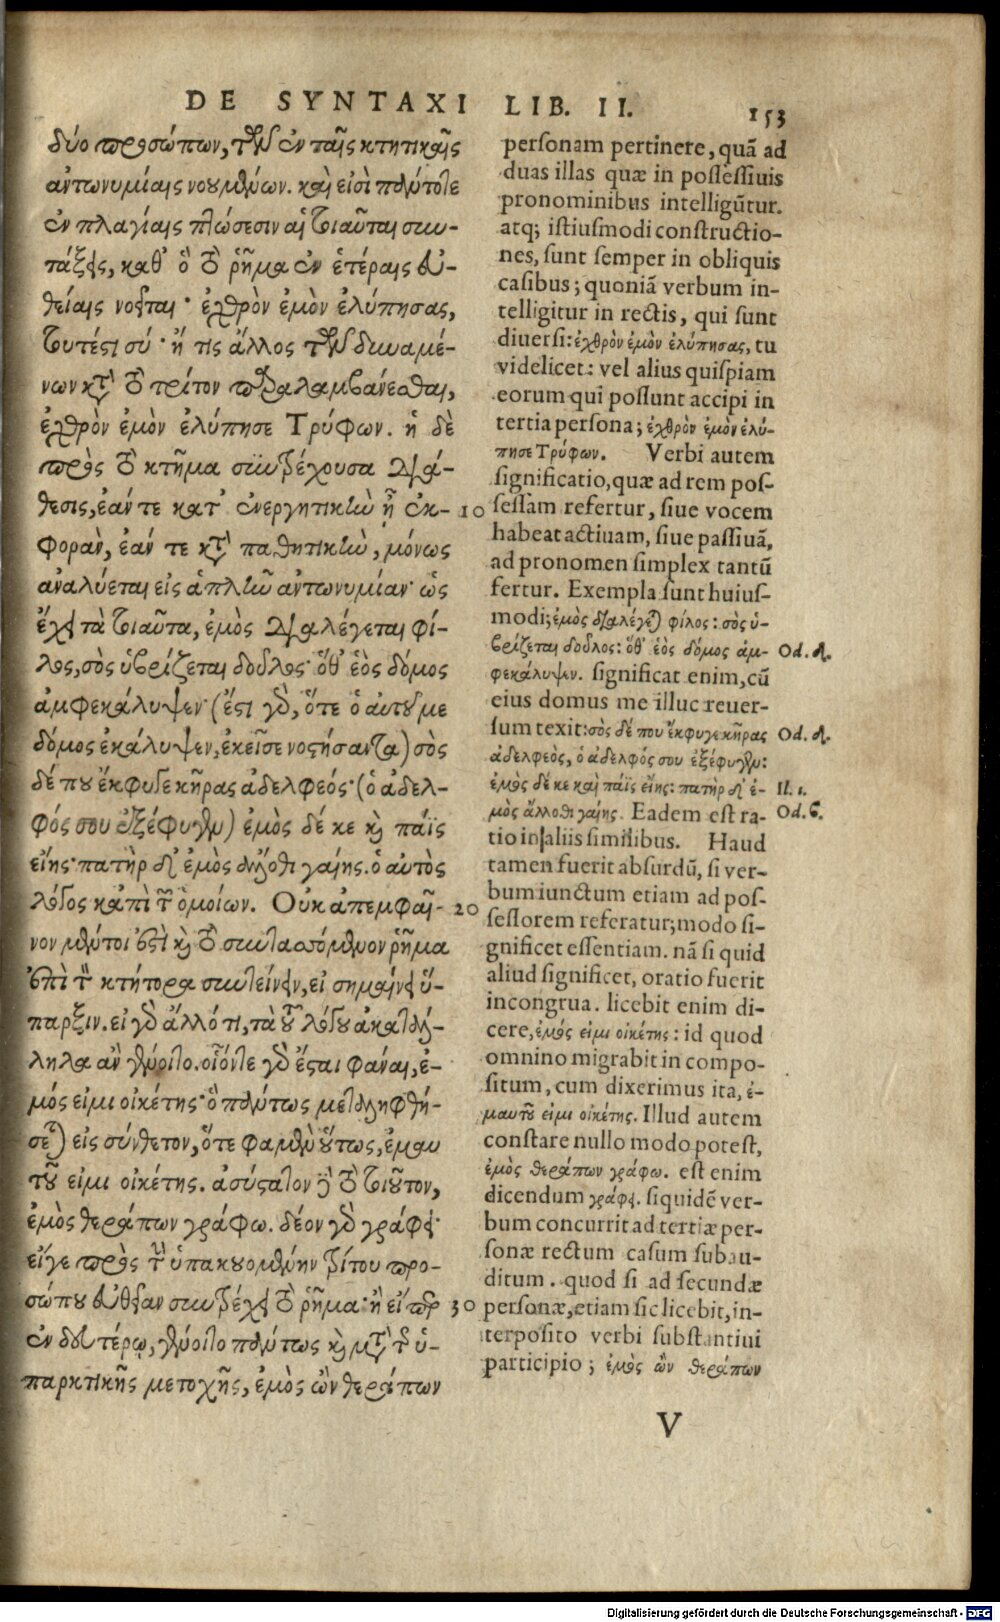 DE SYNTAXI LIB. II. 153
δύο προσώπων, τῶν ἐν ταῖς κτητικαῖς
ἀντωνυμίαις νουμένων. καὶ εἰσὶ πάντοτε
ἐν πλαγίαις πτώσεσιν αἱ τοιαῦται συν-
τάξεις, καθ' ὃ τὸ ῥῆμα ἐν ἑτέραις εὐ-
θείαις νοεῖται· ἐχθρὸν ἐμὸν ἐλύπησας,
τουτέστι σύ· ἤ τις ἄλλος τῶν δυναμέ-
νων κατὰ τὸ τρίτον παραλαμβάνεσθαι,
ἐχθρὸν ἐμὸν ἐλύπησε Τρύφων. ἡ δὲ
πρὸς τὸ κτῆμα συντρέχουσα διά-
θεσις, ἐάν τε κατ' ἐνεργητικὴν ᾖ ἐκ- 10
φορὰν, ἐάν τε κατὰ παθητικὴν, μόνως
ἀναλύεται εἰς ἁπλῆν ἀντωνυμίαν· ὡς
ἔχει τὰ τοιαῦτα, ἐμὸς διαλέγεται φί-
λος, σὸς ὑβρίζεται δοῦλος· ὅθ' ἑὸς δόμος
ἀμφεκάλυψεν· (ἔστι γὰρ, ὅτε ὁ αὐτοῦ με
δόμος ἐκάλυψεν, ἐκεῖσε νοστήσαντα) σὸς
δέ που ἔκφυγε κῆρας ἀδελφεός· (ὁ ἀδελ-
φός σου ἐξέφυγεν) ἐμὸς δέ κε καὶ πάϊς
εἴης· πατὴρ δ' ἐμὸς ἄλλοθι γαίης. ὁ αὐτὸς
λόγος κἀπὶ τῶν ὁμοίων. Οὐκ ἀπεμφαῖ- 20
νον μέντοι ἐστὶ καὶ τὸ συντασσόμενον ῥῆμα
ἐπὶ τὸν κτήτορα συντείνειν, εἰ σημαίνει ὕ-
παρξιν. εἰ γὰρ ἄλλό τι, τὰ τοῦ λόγου ἀκατάλ-
ληλα ἂν γένοιτο. οἷόντε γὰρ ἔσται φάναι, ἐ-
μός εἰμι οἰκέτης· ὃ πάντως μεταληφθή-
σεται εἰς σύνθετον, ὅτε φαμὲν οὕτως, ἐμαυ
τοῦ εἰμι οἰκέτης. ἀσύστατον γὰρ τὸ τοιοῦτον,
ἐμὸς θεράπων γράφω. δέον γὰρ γράφει·
εἴγε πρὸς τὴν ὑπακουομένην τρίτου προ-
σώπου εὐθεῖαν συντρέχει τὸ ῥῆμα· ἢ εἴπερ 30
ἐν δευτέρῳ, γένοιτο πάντως καὶ μετὰ τῆς ὑ-
παρκτικῆς μετοχῆς, ἐμὸς ὢν θεράπων
personam pertinere, quã ad
duas illas quæ in possessiuis
pronominibus intelligũtur.
atq; istiusmodi constructio-
nes, sunt semper in obliquis
casibus; quoniã verbum in-
telligitur in rectis, qui sunt
diuersi: ἐχθρὸν ἐμὸν ἐλύπησας, tu
videlicet: vel alius quispiam
eorum qui possunt accipi in
tertia persona; ἐχθρὸν ἐμὸν ἐλύ-
πησε Τρύφων. Verbi autem
significatio, quæ ad rem pos-
sessam refertur, siue vocem
habeat actiuam, siue passiuã,
ad pronomen simplex tantũ
fertur. Exempla sunt huius-
modi; ἐμὸς διαλέγεται φίλος: σὸς ὑ-
βρίζεται δοῦλος: ὅθ' ἑὸς δόμος ἀμ- Od. δ.
φεκάλυψεν. significat enim, cũ
eius domus me illuc reuer-
sum texit: σὸς δέ που ἔκφυγε κῆρας Od. δ.
ἀδελφεὸς, ὁ ἀδελφός σου ἐξέφυγεν:
ἐμὸς δέ κε καὶ πάϊς εἴης: πατὴρ δ' ἐ- Il. ι.
μὸς ἄλλοθι γαίης. Eadem est ra- Od. β.
tio in aliis similibus. Haud
tamen fuerit absurdũ, si ver-
bum iunctum etiam ad pos-
sessorem referatur; modo si-
gnificet essentiam. nã si quid
aliud significet, oratio fuerit
incongrua. licebit enim di-
cere, ἐμός εἰμι οἰκέτης: id quod
omnino migrabit in compo-
situm, cum dixerimus ita, ἐ-
μαυτοῦ εἰμι οἰκέτης. Illud autem
constare nullo modo potest,
ἐμὸς θεράπων γράφω. est enim
dicendum γράφει. siquidẽ ver-
bum concurrit ad tertiæ per-
sonæ rectum casum subau-
ditum. quod si ad secundæ
personæ, etiam sic licebit, in-
terposito verbi substantiui
participio; ἐμὸς ὢν θεράπων
V
Digitalisierung gefördert durch die Deutsche Forschungsgemeinschaft - DFG